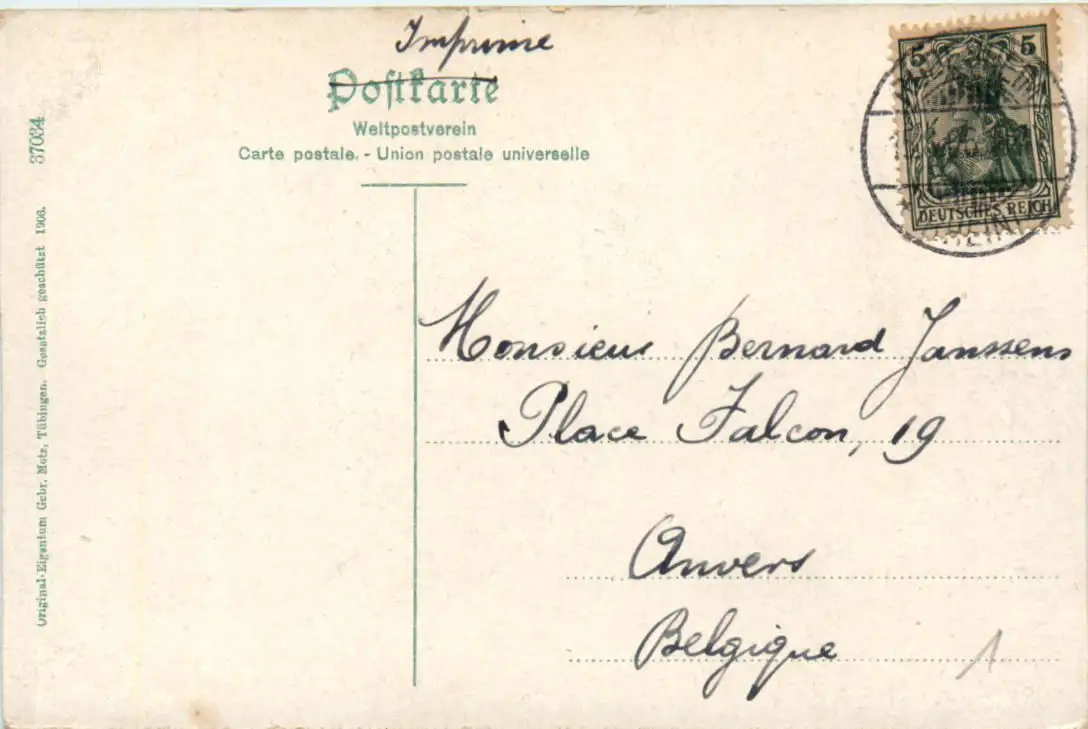 Imprimé
Postkarte
Weltpostverein
Carte postale. - Union postale universelle
5 5
DEUTSCHES REICH
37034
Original-Eigentum Gebr. Metz, Tübingen. Gesetzlich geschützt 1908.
Monsieur Bernard Janssens
Place Falcon, 19
Anvers
Belgique
1